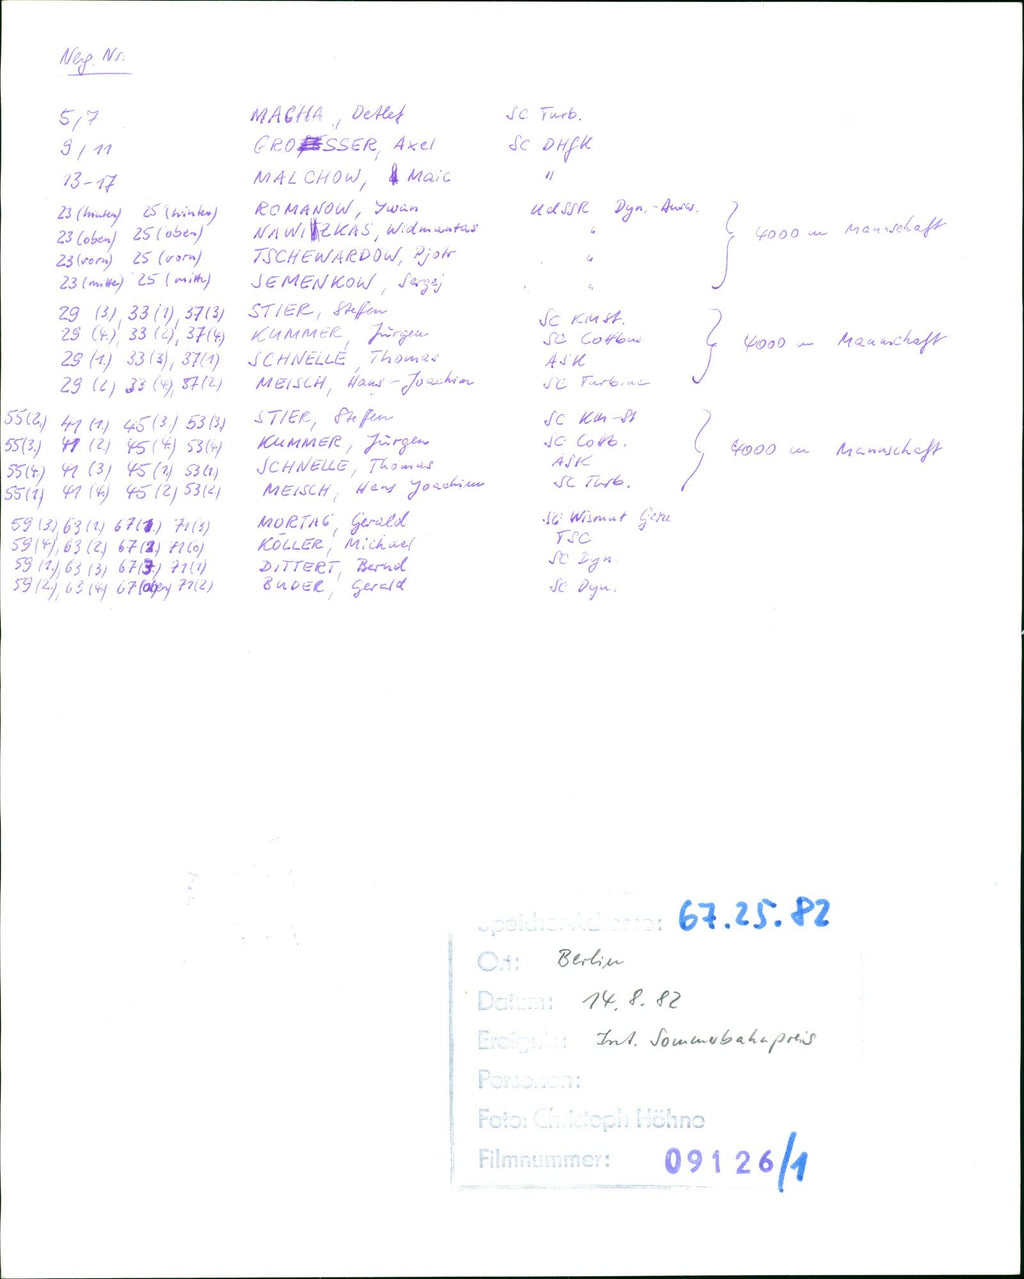 Neg. Nr.
5/7 MACHA, Detlef SC Turb.
9/11 GROSSER, Axel SC DHfK
13-17 MALCHOW, Maic "
23 (hinten) 25 (hinten) ROMANOW, Iwan UdSSR Dyn.-Ausw.
23 (oben) 25 (oben) NAWITZKAS, Widmantas " 4000 m Mannschaft
23 (vorn) 25 (vorn) TSCHEWARDOW, Pjotr "
23 (mitte) 25 (mitte) SEMENKOW, Sergej "
29 (3), 33 (1), 37(3) STIER, Steffen SC KMSt.
29 (4), 33 (2), 37(4) KUMMER, Jürgen SC Cottbus 4000 m Mannschaft
29 (1) 33 (3), 37(1) SCHNELLE, Thomas ASK
29 (2) 33 (4), 37(2) MEISCH, Hans-Joachim SC Turbine
55(2) 41 (1) 45(3) 53(3) STIER, Steffen SC KM-St
55(3) 41 (2) 45(4) 53(4) KUMMER, Jürgen SC Cottb. 4000 m Mannschaft
55(4) 41 (3) 45(1) 53(1) SCHNELLE, Thomas ASK
55(1) 41 (4) 45(2) 53(2) MEISCH, Hans Joachim SC Turb.
59 (3), 63 (1) 67(1) 71(3) MORTAG, Gerald SG Wismut Gera
59(4), 63(2) 67(2) KÖLLER, Michael TSC
59(1), 63(3) 67(3) 71(1) DITTERT, Bernd SC Dyn.
59(2), 63(4) 67(oben) 71(2) BUDER, Gerald SC Dyn.
Speicher-Adresse: 67.25.82
Ort: Berlin
Datum: 14.8.82
Ereignis: Int. Sommerbahnpreis
Personen:
Foto: Christoph Höhne
Filmnummer: 09126/1